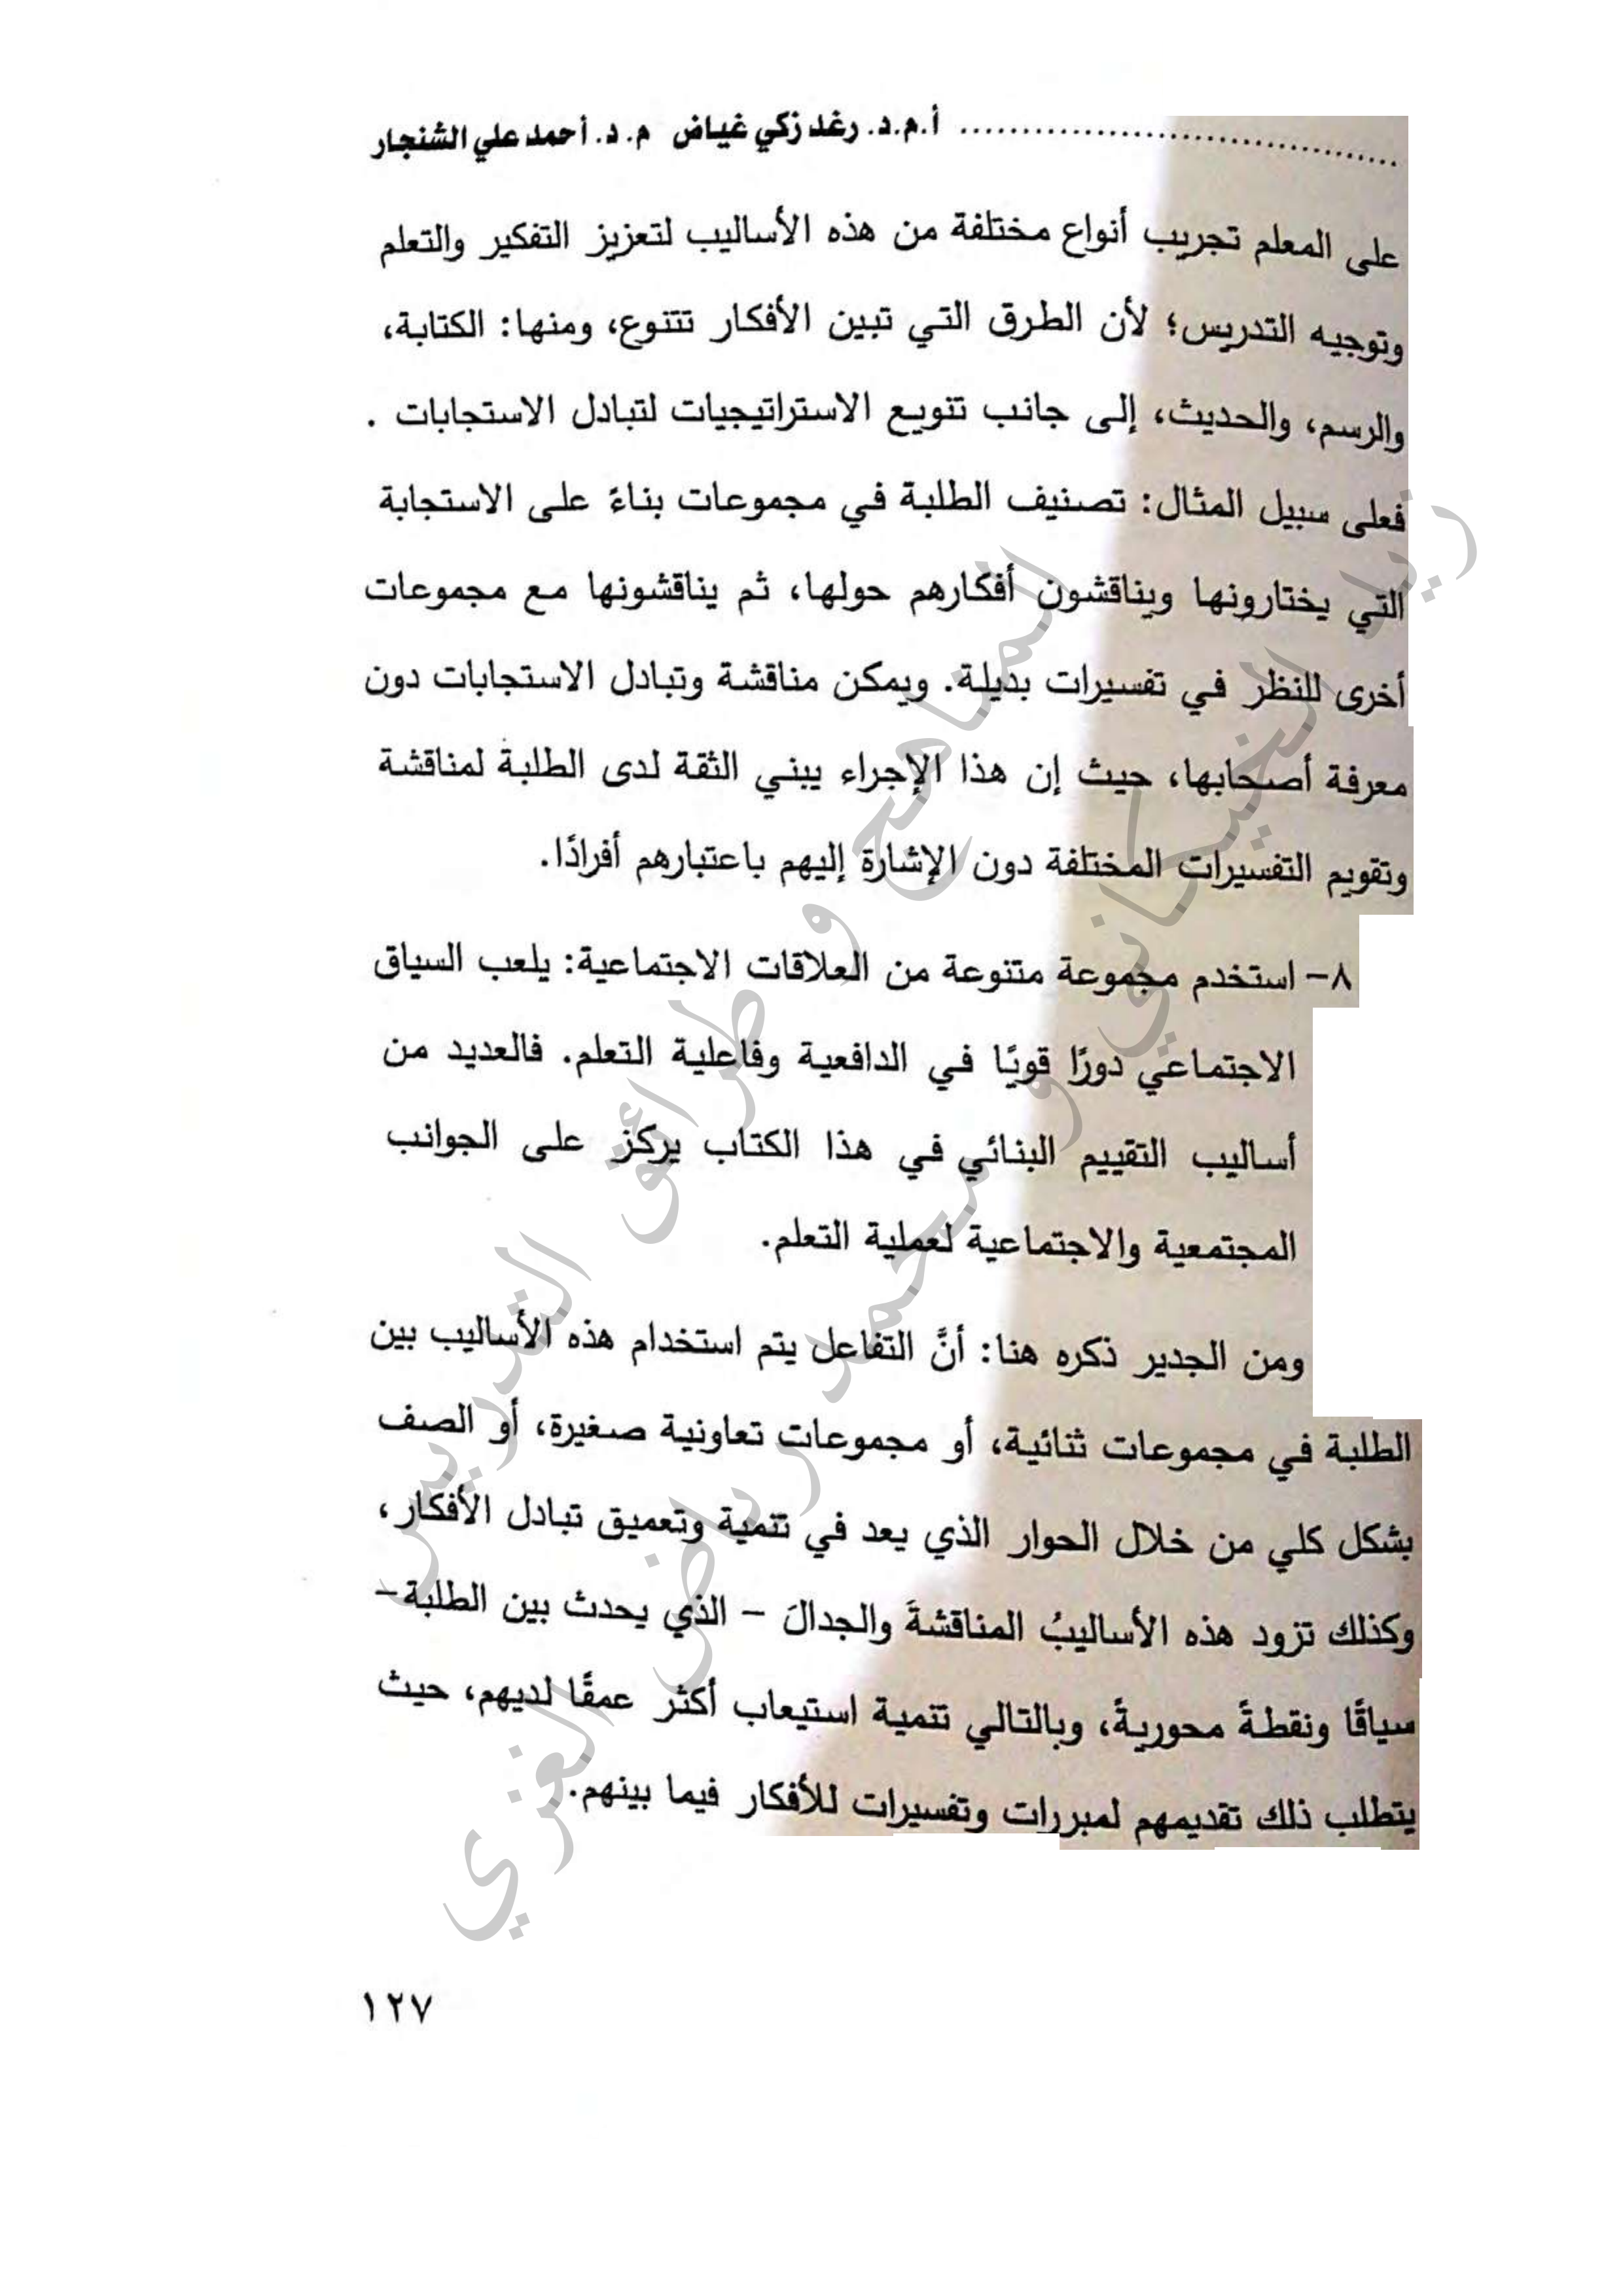 ........................................ أ.م.د. رغد زكي غياض م. د. أحمد علي الشنجار
على المعلم تجريب أنواع مختلفة من هذه الأساليب لتعزيز التفكير والتعلم
وتوجيه التدريس؛ لأن الطرق التي تبين الأفكار تتنوع، ومنها: الكتابة،
والرسم، والحديث، إلى جانب تنويع الاستراتيجيات لتبادل الاستجابات .
فعلى سبيل المثال: تصنيف الطلبة في مجموعات بناءً على الاستجابة
التي يختارونها ويناقشون أفكارهم حولها، ثم يناقشونها مع مجموعات
أخرى للنظر في تفسيرات بديلة. ويمكن مناقشة وتبادل الاستجابات دون
معرفة أصحابها، حيث إن هذا الإجراء يبني الثقة لدى الطلبة لمناقشة
وتقويم التفسيرات المختلفة دون الإشارة إليهم باعتبارهم أفرادًا.
٨- استخدم مجموعة متنوعة من العلاقات الاجتماعية: يلعب السياق
الاجتماعي دورًا قويًا في الدافعية وفاعلية التعلم. فالعديد من
أساليب التقييم البنائي في هذا الكتاب يركز على الجوانب
المجتمعية والاجتماعية لعملية التعلم.
ومن الجدير ذكره هنا: أنَّ التفاعل يتم استخدام هذه الأساليب بين
الطلبة في مجموعات ثنائية، أو مجموعات تعاونية صغيرة، أو الصف
بشكل كلي من خلال الحوار الذي يعد في تنمية وتعميق تبادل الأفكار،
وكذلك تزود هذه الأساليبُ المناقشةَ والجدالَ – الذي يحدث بين الطلبة–
سياقًا ونقطةً محوريةً، وبالتالي تنمية استيعاب أكثر عمقًا لديهم، حيث
يتطلب ذلك تقديمهم لمبررات وتفسيرات للأفكار فيما بينهم.
المناهج و طرائق التدريس
الخيكاني و محمد رياض الغزي
١٢٧